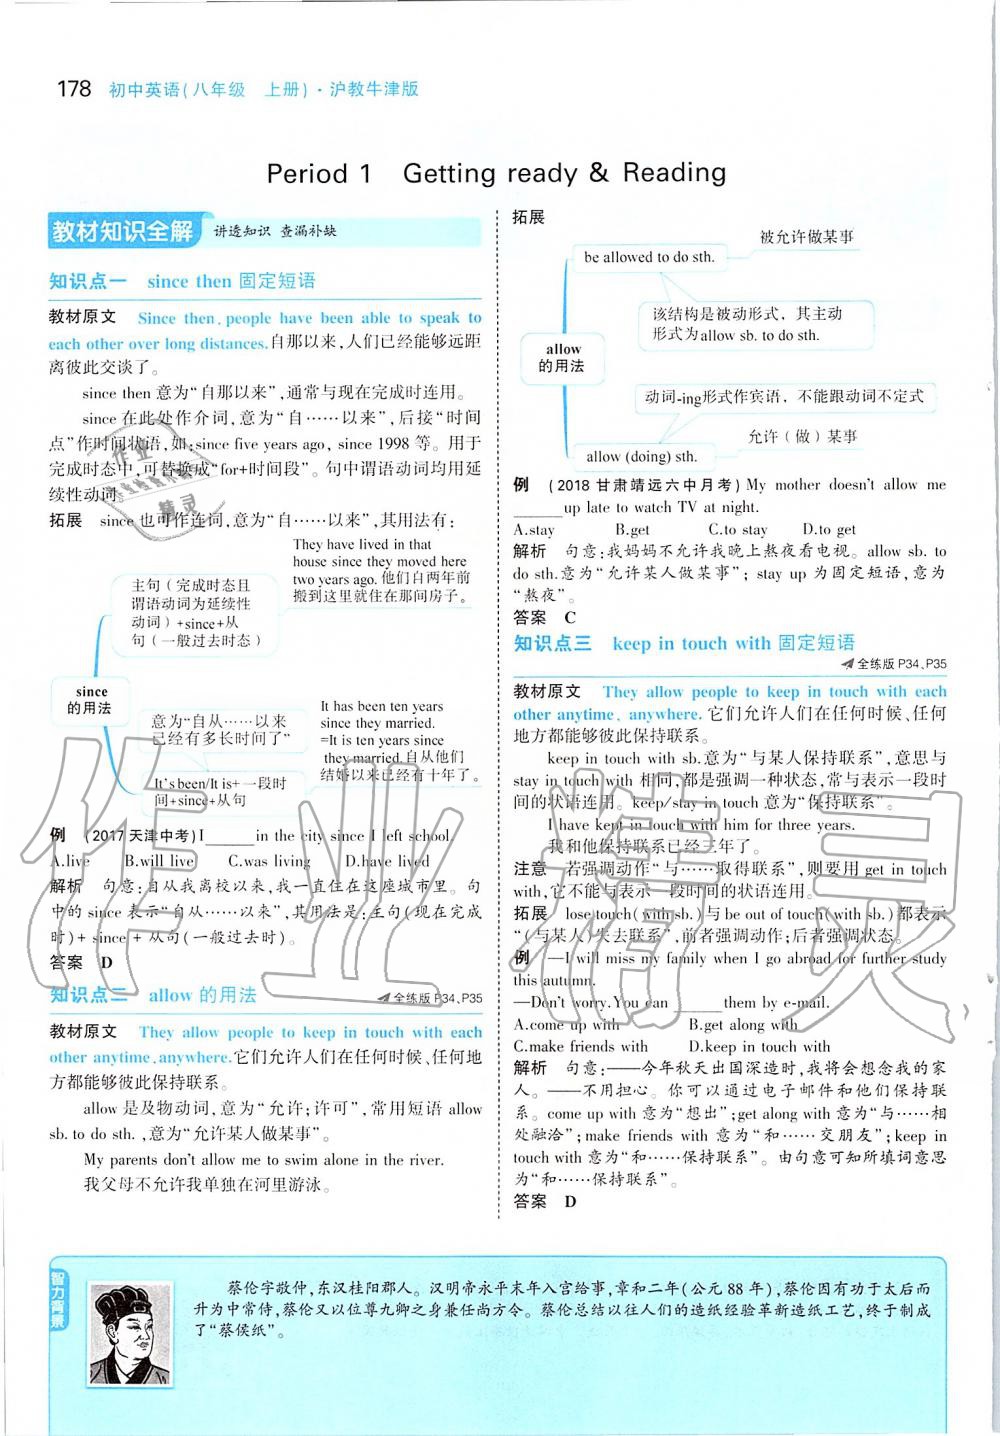 178 初中英语(八年级 上册)·沪教牛津版
Period 1 Getting ready & Reading
教材知识全解 讲透知识 查漏补缺
知识点一 since then 固定短语
教材原文 Since then, people have been able to speak to
each other over long distances.自那以来,人们已经能够远距
离彼此交谈了。
since then 意为“自那以来”,通常与现在完成时连用。
since 在此处作介词,意为“自……以来”,后接“时间
点”作时间状语,如:since five years ago, since 1998 等。用于
完成时态中,可替换成“for+时间段”。句中谓语动词均用延
续性动词。
拓展 since 也可作连词,意为“自……以来”,其用法有:
They have lived in that
house since they moved here
two years ago. 他们自两年前
搬到这里就住在那间房子。
主句(完成时态且
谓语动词为延续性
动词)+since+从
句(一般过去时态)
since
的用法
It has been ten years
since they married.
=It is ten years since
they married.自从他们
结婚以来已经有十年了。
意为“自从……以来
已经有多长时间了”
It's been/It is+一段时
间+since+从句
例 (2017天津中考)I ______ in the city since I left school.
A.live B.will live C.was living D.have lived
解析 句意:自从我离校以来,我一直住在这座城市里。句
中的 since 表示“自从……以来”,其用法是:主句(现在完成
时)+ since + 从句(一般过去时)。
答案 D
知识点二 allow 的用法 全练版 P34、P35
教材原文 They allow people to keep in touch with each
other anytime, anywhere.它们允许人们在任何时候、任何地
方都能够彼此保持联系。
allow 是及物动词,意为“允许;许可”,常用短语 allow
sb. to do sth. ,意为“允许某人做某事”。
My parents don't allow me to swim alone in the river.
我父母不允许我单独在河里游泳。
拓展
被允许做某事
be allowed to do sth.
该结构是被动形式,其主动
形式为allow sb. to do sth.
allow
的用法
动词-ing形式作宾语,不能跟动词不定式
允许(做)某事
allow (doing) sth.
例 (2018甘肃靖远六中月考)My mother doesn't allow me
______up late to watch TV at night.
A.stay B.get C.to stay D.to get
解析 句意:我妈妈不允许我晚上熬夜看电视。allow sb. to
do sth.意为“允许某人做某事”; stay up 为固定短语,意为
“熬夜”。
答案 C
知识点三 keep in touch with 固定短语
全练版 P34、P35
教材原文 They allow people to keep in touch with each
other anytime, anywhere. 它们允许人们在任何时候、任何
地方都能够彼此保持联系。
keep in touch with sb.意为“与某人保持联系”,意思与
stay in touch with 相同,都是强调一种状态,常与表示一段时
间的状语连用。keep/stay in touch 意为“保持联系”。
I have kept in touch with him for three years.
我和他保持联系已经三年了。
注意 若强调动作“与……取得联系”,则要用 get in touch
with,它不能与表示一段时间的状语连用。
拓展 lose touch(with sb.)与be out of touch(with sb.)都表示
“(与某人)失去联系”,前者强调动作;后者强调状态。
例 —I will miss my family when I go abroad for further study
this autumn.
—Don't worry.You can ______ them by e-mail.
A.come up with B.get along with
C.make friends with D.keep in touch with
解析 句意:——今年秋天出国深造时,我将会想念我的家
人。——不用担心。你可以通过电子邮件和他们保持联
系。come up with 意为“想出”;get along with 意为“与……相
处融洽”;make friends with 意为“和……交朋友”;keep in
touch with 意为“和……保持联系”。由句意可知所填词意思
为“和……保持联系”。
答案 D
智力背景
蔡伦字敬仲,东汉桂阳郡人。汉明帝永平末年入宫给事,章和二年(公元 88 年),蔡伦因有功于太后而
升为中常侍,蔡伦又以位尊九卿之身兼任尚方令。蔡伦总结以往人们的造纸经验革新造纸工艺,终于制成
了“蔡侯纸”。
作业精灵